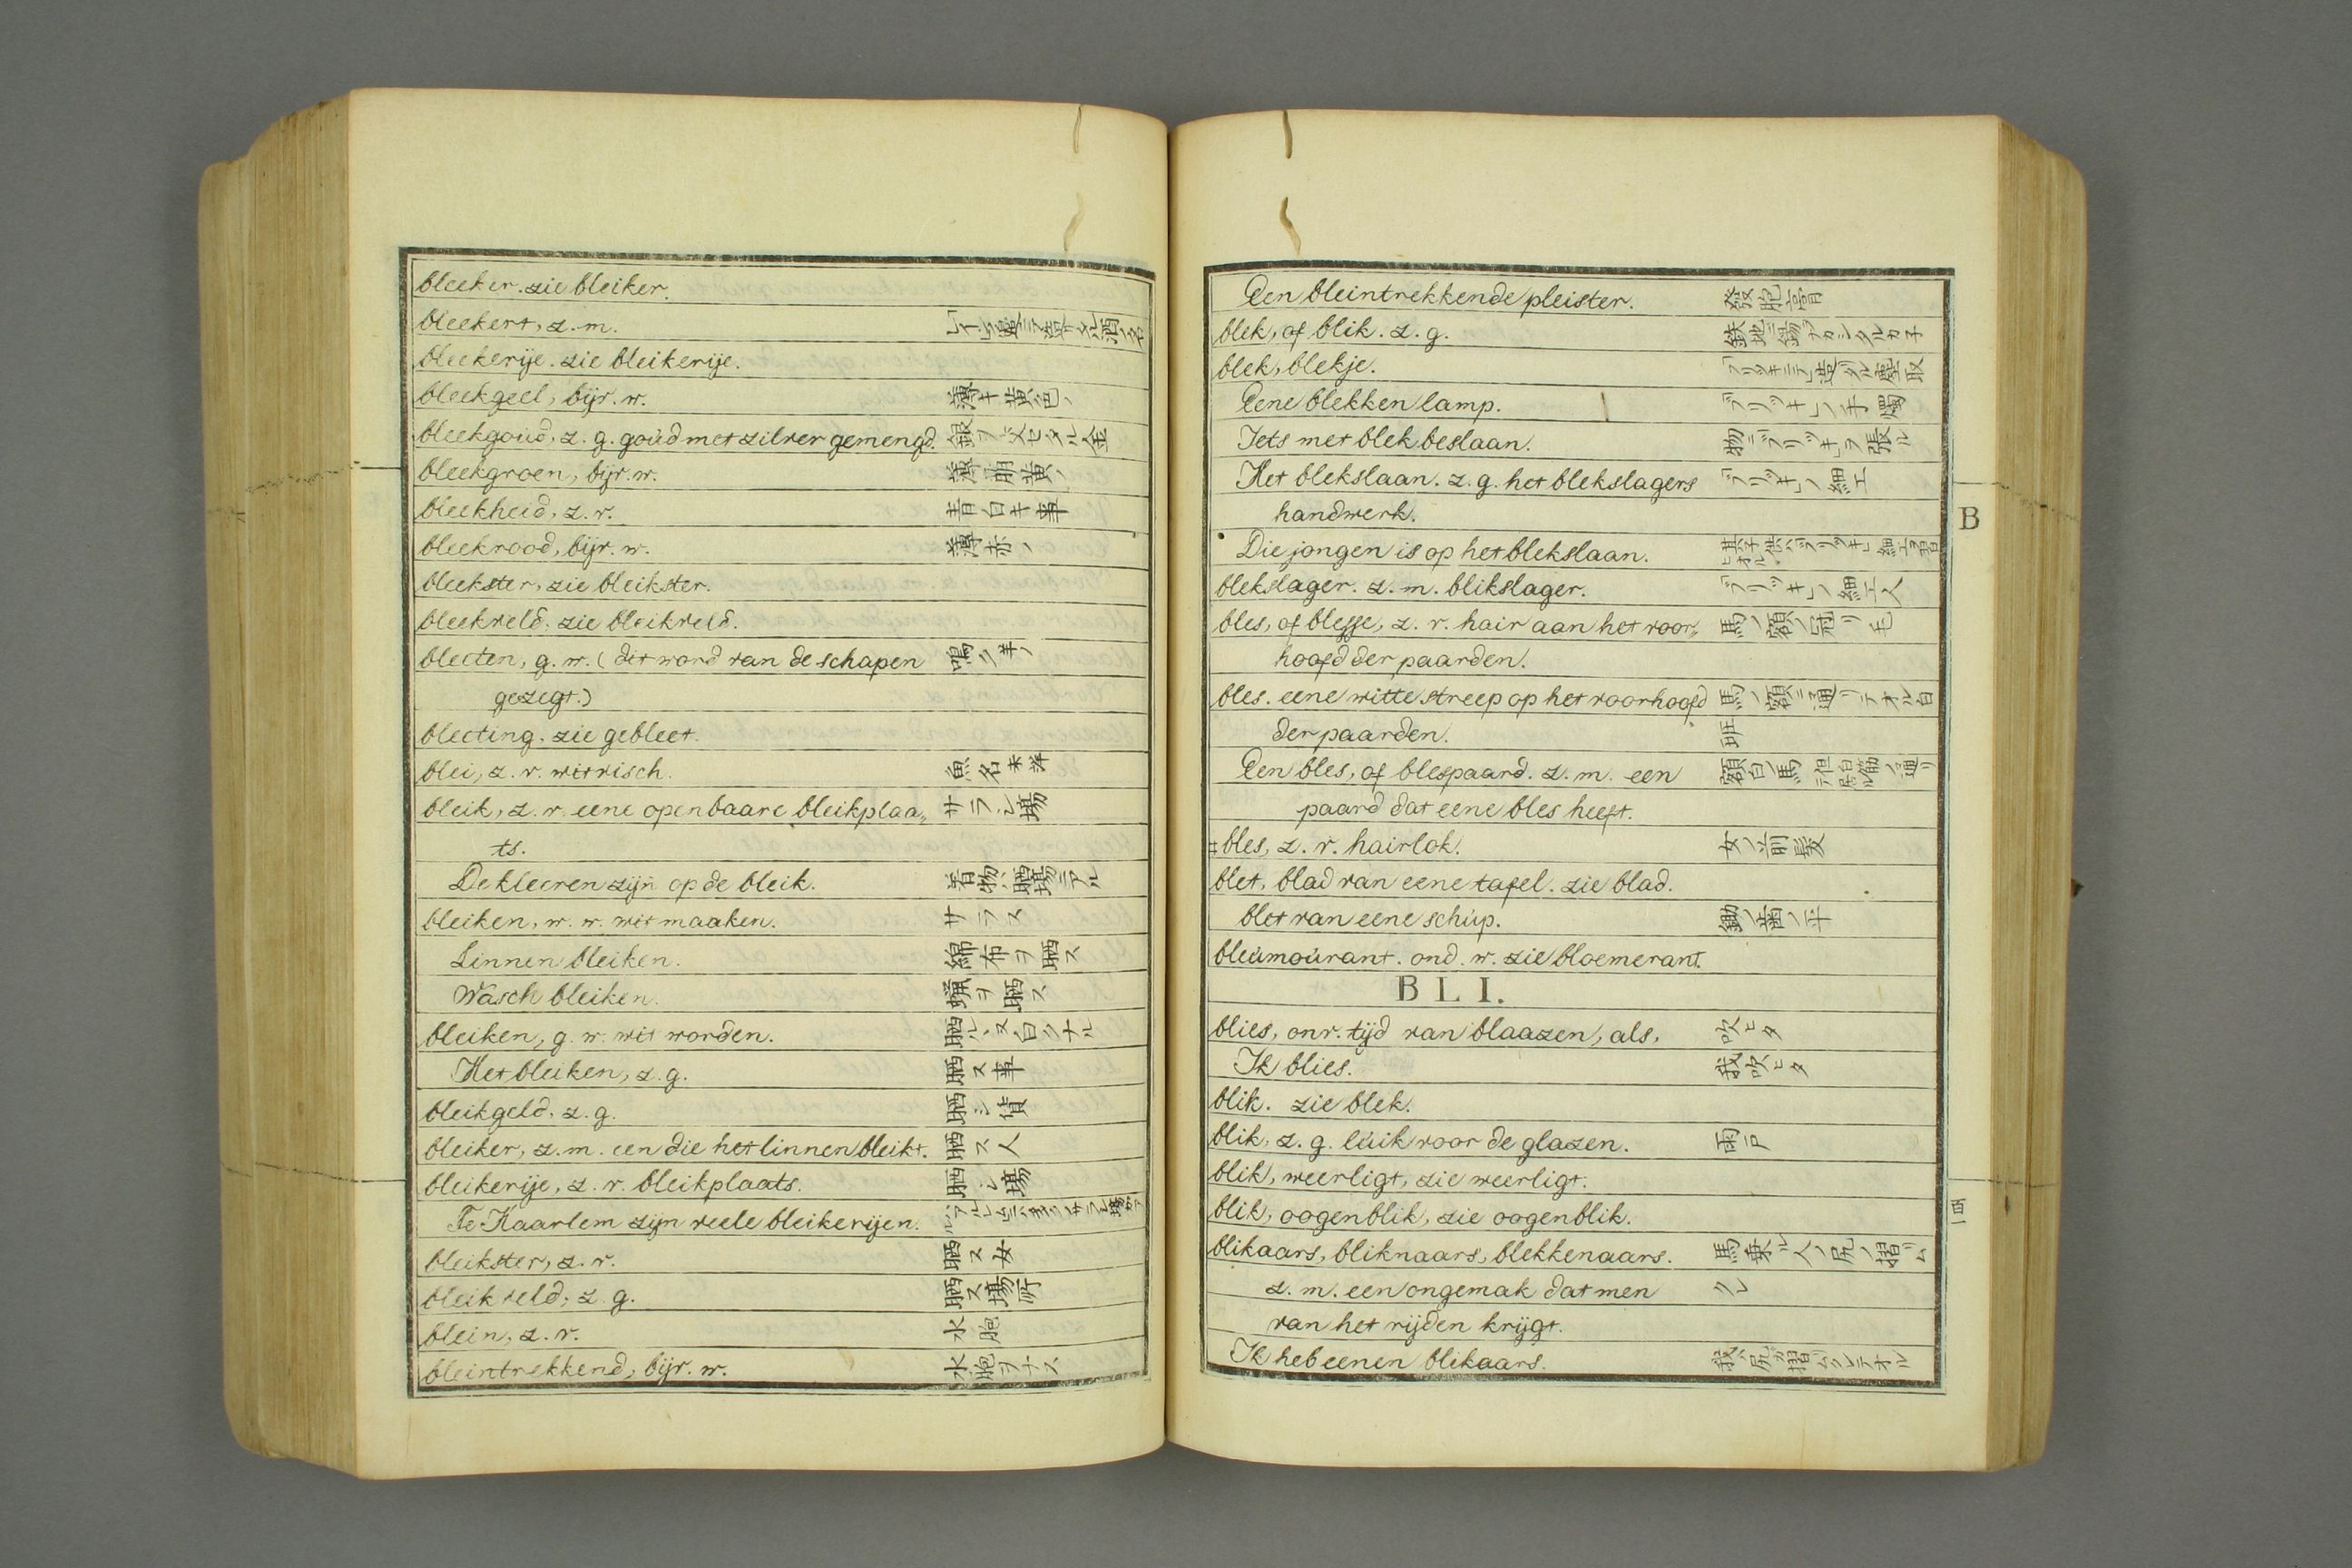 bleeker. zie bleiker.
bleekert, z. m.
bleekerije. zie bleikerije.
bleekgeel, bijv. w. 薄キ黄色ノ
bleekgoud, z. g. goud met zilver gemengd. 銀ヲ交セタル金
bleekgroen, bijv. w. 薄萌黄ノ
bleekheid, z. v. 青白キ事
bleekrood, bijv. w. 薄赤ノ
bleekster, zie bleikster.
bleekveld, zie bleikveld.
bleeten, g. w. (dit word van de schapen 鳴ク羊ノ
gezegt.)
bleeting. zie gebleet.
blei, z. v. witvisch. 魚名未詳
bleik, z. v. eene openbaare bleikplaa„ サラシ場
ts.
De kleeren zijn op de bleik. 着物ハ晒場ニアル
bleiken, w. w. wit maaken. サラス
Linnen bleiken. 綿布ヲ晒ス
Wasch bleiken. 蝋ヲ晒ス
bleiken, g. w. wit worden. 晒ル又白クナル
Het bleiken, z. g. 晒ス事
bleikgeld, z. g. 晒シ賃
bleiker, z. m. een die het linnen bleikt. 晒ス人
bleikerije, z. v. bleikplaats. 晒シ場
Te Haarlem zijn veele bleikerijen.
bleikster, z. v. 晒ス女
bleikveld, z. g. 晒ス場所
blein, z. v. 水胞
bleintrekkend, bijv. w. 水胞ヲナス
Een bleintrekkende pleister. 發胞膏
blek, of blik. z. g. 鉄地ニ錫ヲカシタルカ子
blek, blekje. ブリッキニテ造リタル塵取
Eene blekken lamp. ブリッキノ手燭
Iets met blek beslaan. 物ニブリッキヲ張ル
Het blekslaan. z. g. het blekslagers ブリッキノ細工
handwerk.
Die jongen is op het blekslaan. 其子供ハブリッキ細工ヲ習ヒオル
blekslager. z. m. blikslager. ブリッキノ細工人
bles, of blesse, z. v. hair aan het voor„ 馬ノ額ノ冠リ毛
hoofd der paarden.
bles. eene witte streep op het voorhoofd 馬ノ額ニ通リテオル白
der paarden. 班
Een bles, of blespaard. z. m. een 額白ノ馬 但白筋ノ通リテ居ル
paard dat eene bles heeft.
‡bles, z. v. hairlok. 女ノ前髪
blet, blad van eene tafel. zie blad.
blet van eene schup. 鋤ノ歯ノ平
bleumourant. ond. w. zie bloemerant.
B L I.
blies, onv. tijd van blaazen, als, 吹ヒタ
Ik blies. 我吹ヒタ
blik. zie blek.
blik, z. g. luik voor de glazen. 雨戸
blik, weerligt, zie weerligt.
blik, oogenblik, zie oogenblik.
blikaars, bliknaars, blekkenaars. 馬乗ル人ノ尻ノ摺リム
z. m. een ongemak dat men クレ
van het rijden krijgt.
Ik heb eenen blikaars. 我ハ尻ガ摺ムクレテオル
B
百一